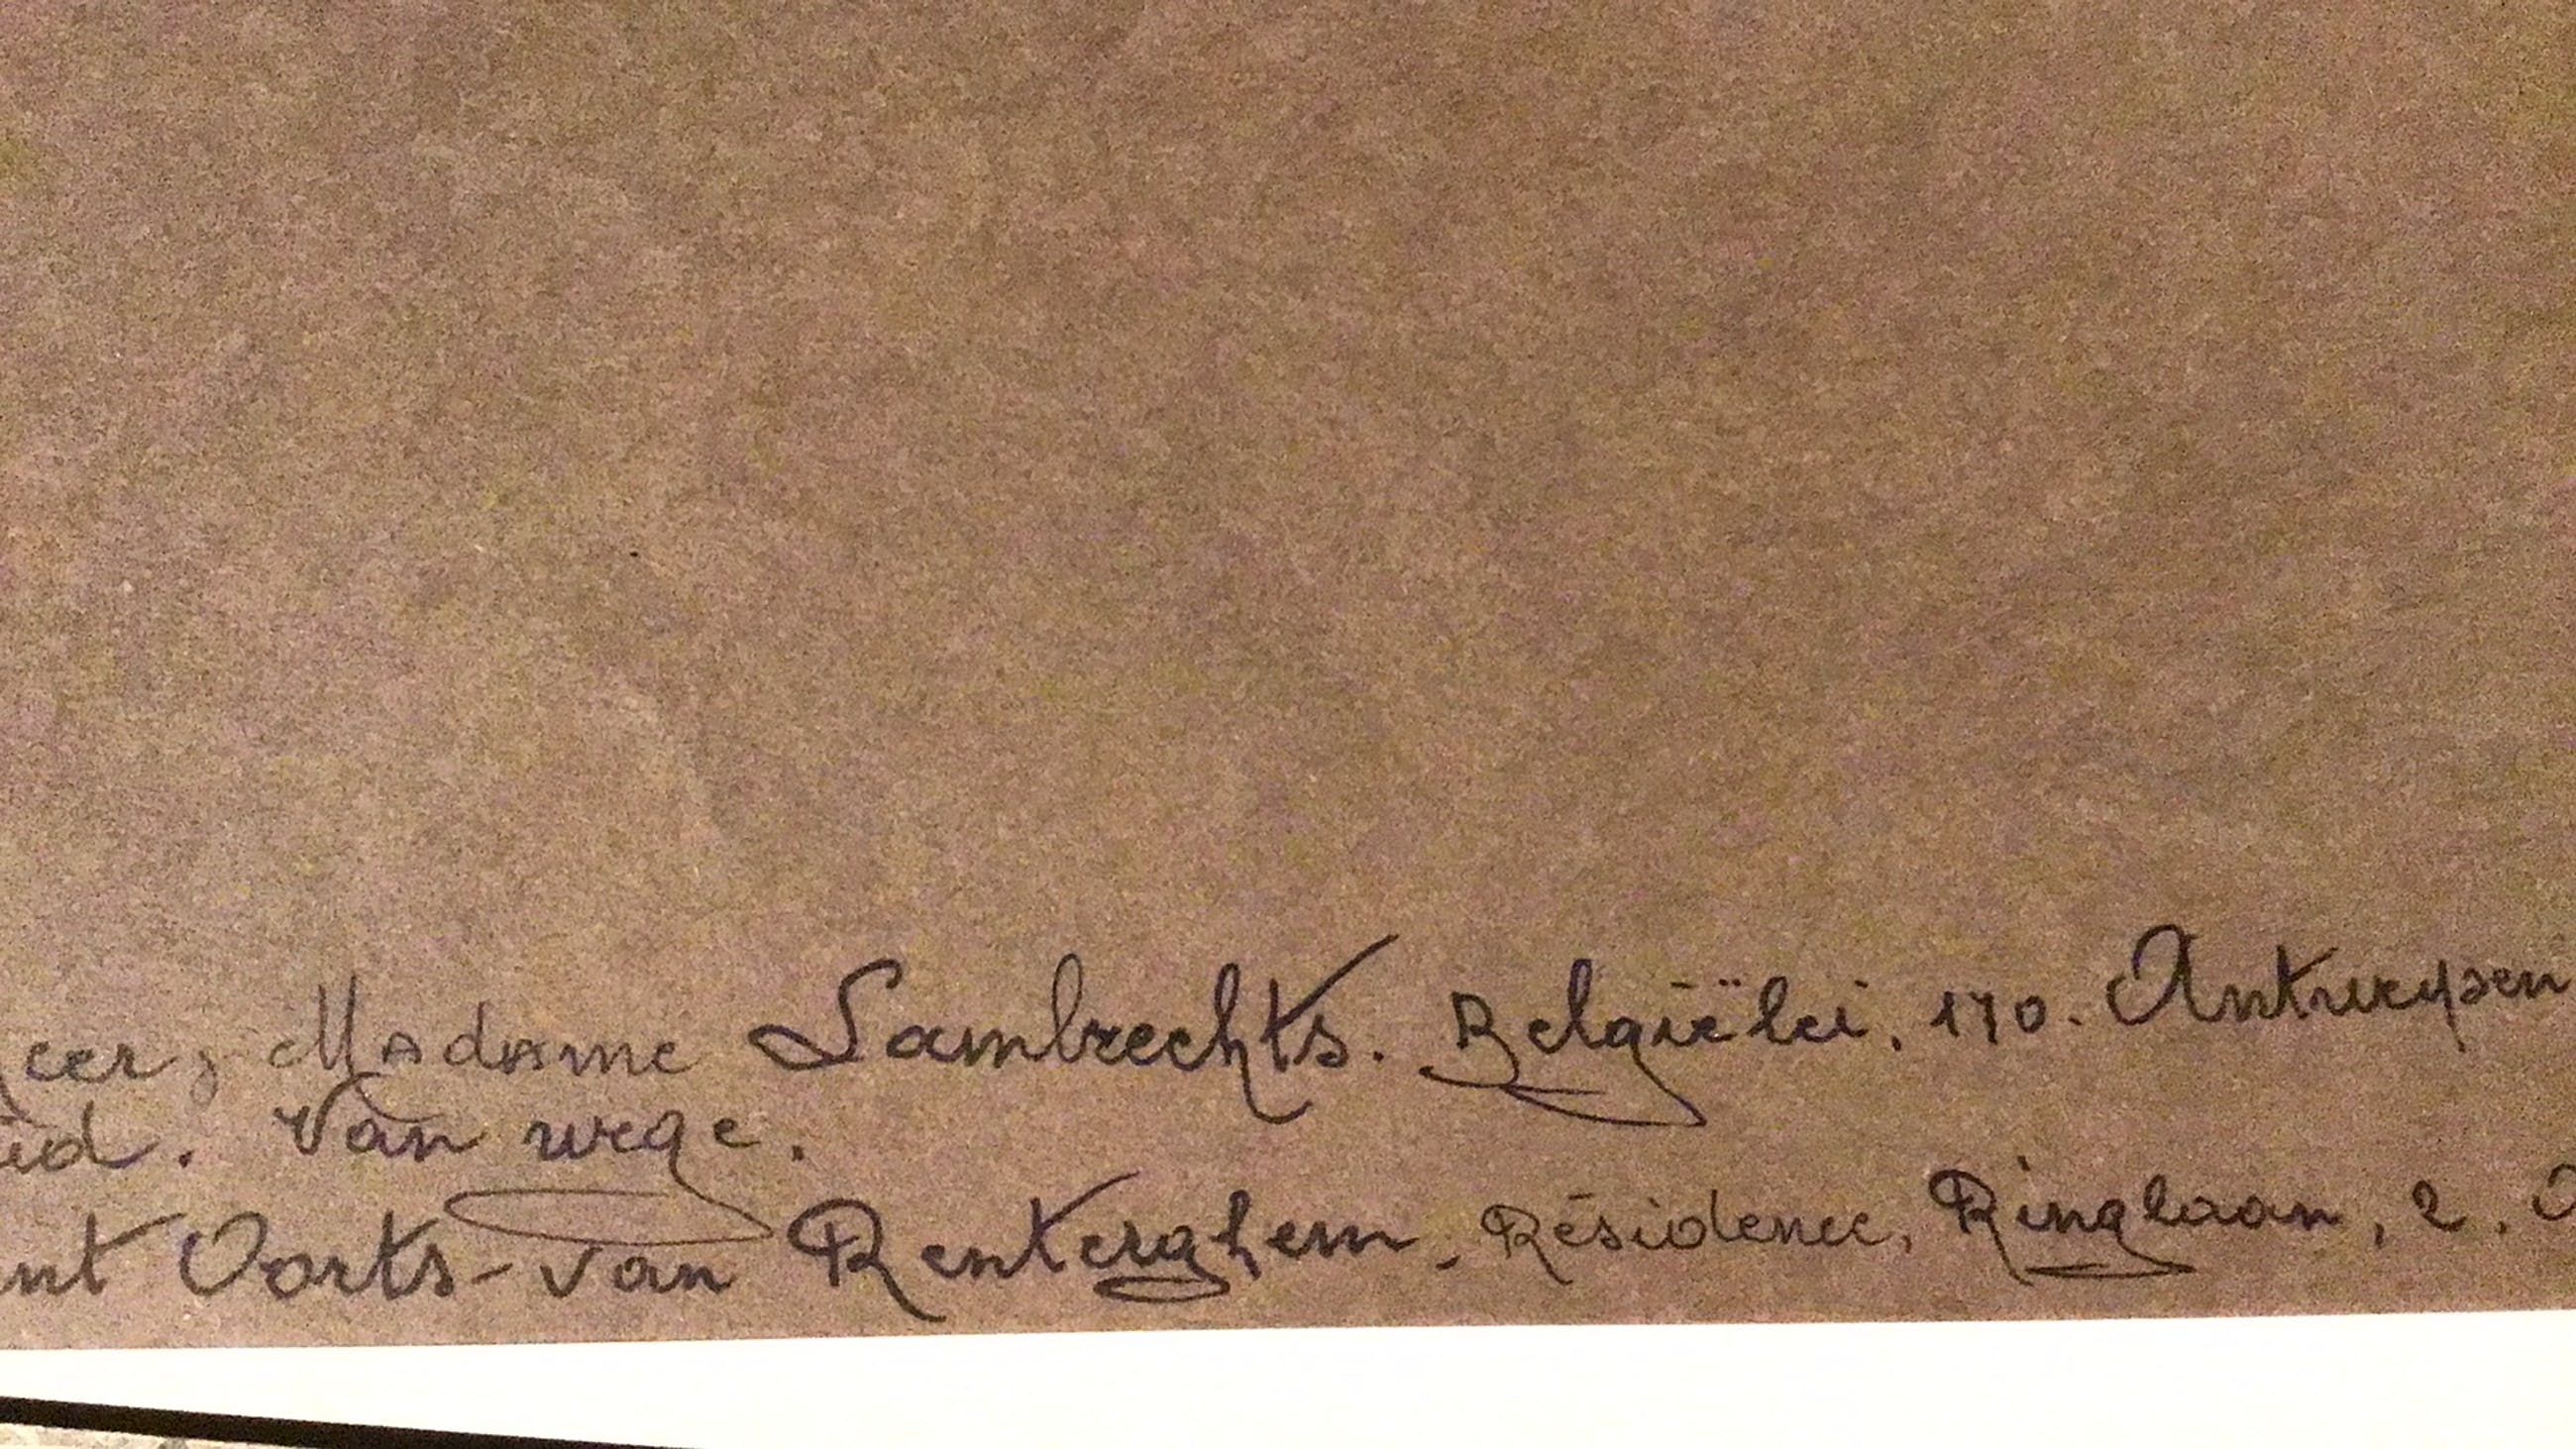 eer, Madame Lambrechts. Belgiëlei, 170. Antwerpen
eid. Van wege.
nt Oorts-van Renterghem, Résidence, Ringlaan, 2.